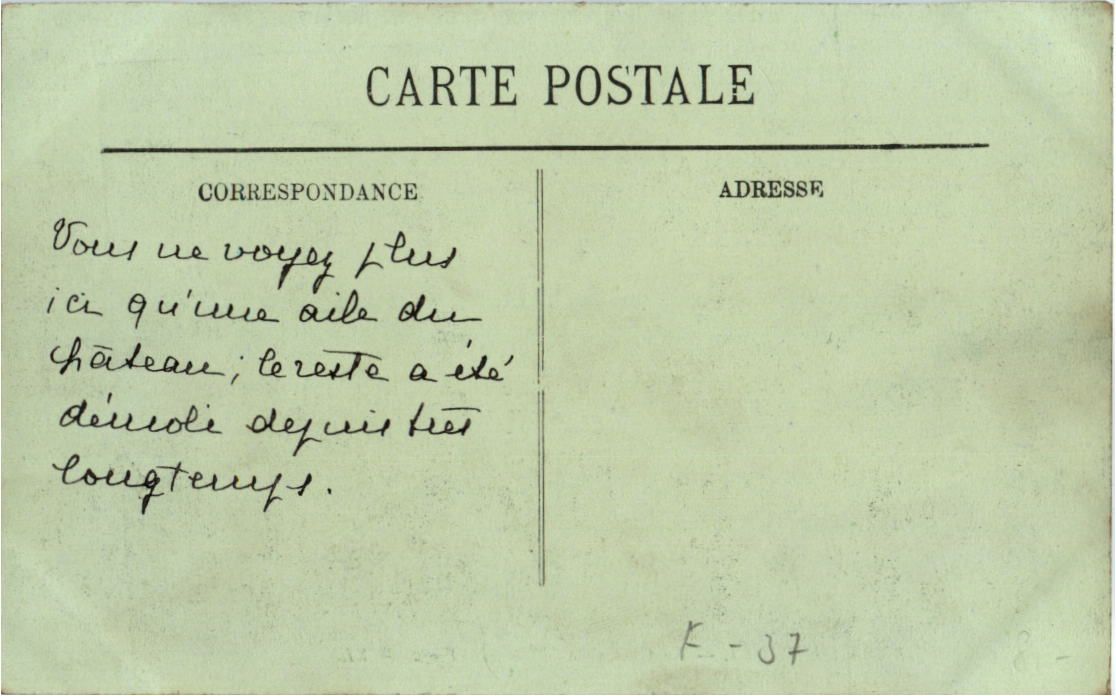 CARTE POSTALE
CORRESPONDANCE
ADRESSE
Vous ne voyez plus
ici qu'une aile du
château ; le reste a été
démoli depuis très
longtemps.
K - 37